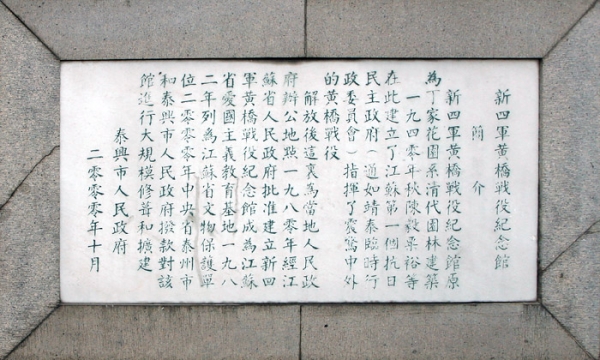 新四軍黄橋戰役紀念館
簡介
新四軍黄橋戰役紀念館原
為丁家花園系清代園林建築
一九四零年秋陳毅粟裕等
在此建立了江蘇第一個抗日
民主政府(通如靖泰臨時行
政委員會)指揮了震驚中外
的黄橋戰役
解放後這裏為當地人民政
府辦公地點一九八零年經江
蘇省人民政府批准建立新四
軍黄橋戰役紀念館成為江蘇
省愛國主義教育基地一九八
二年列為江蘇省文物保護單
位二零零零年中央省泰州市
和泰興市人民政府撥款對該
館進行大規模修葺和擴建
泰興市人民政府
二零零零年十月